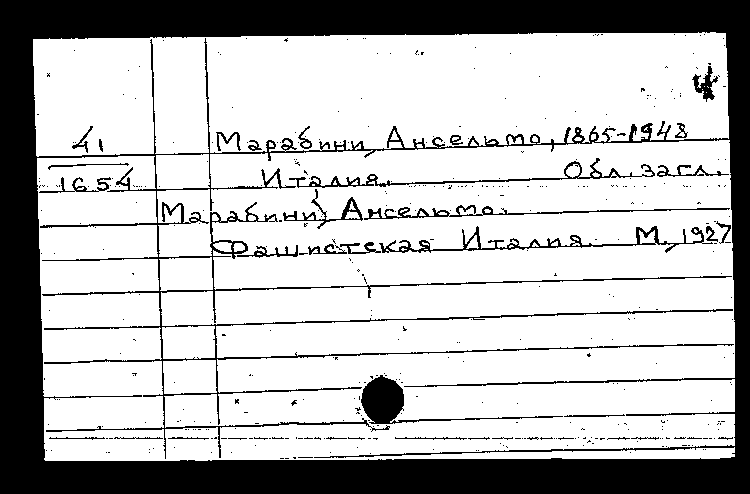 41 Марабини, Ансельмо, 1865-1948
1654 Италия. Обл. загл.
Марабини, Ансельмо.
Фашистская Италия. М., 1927